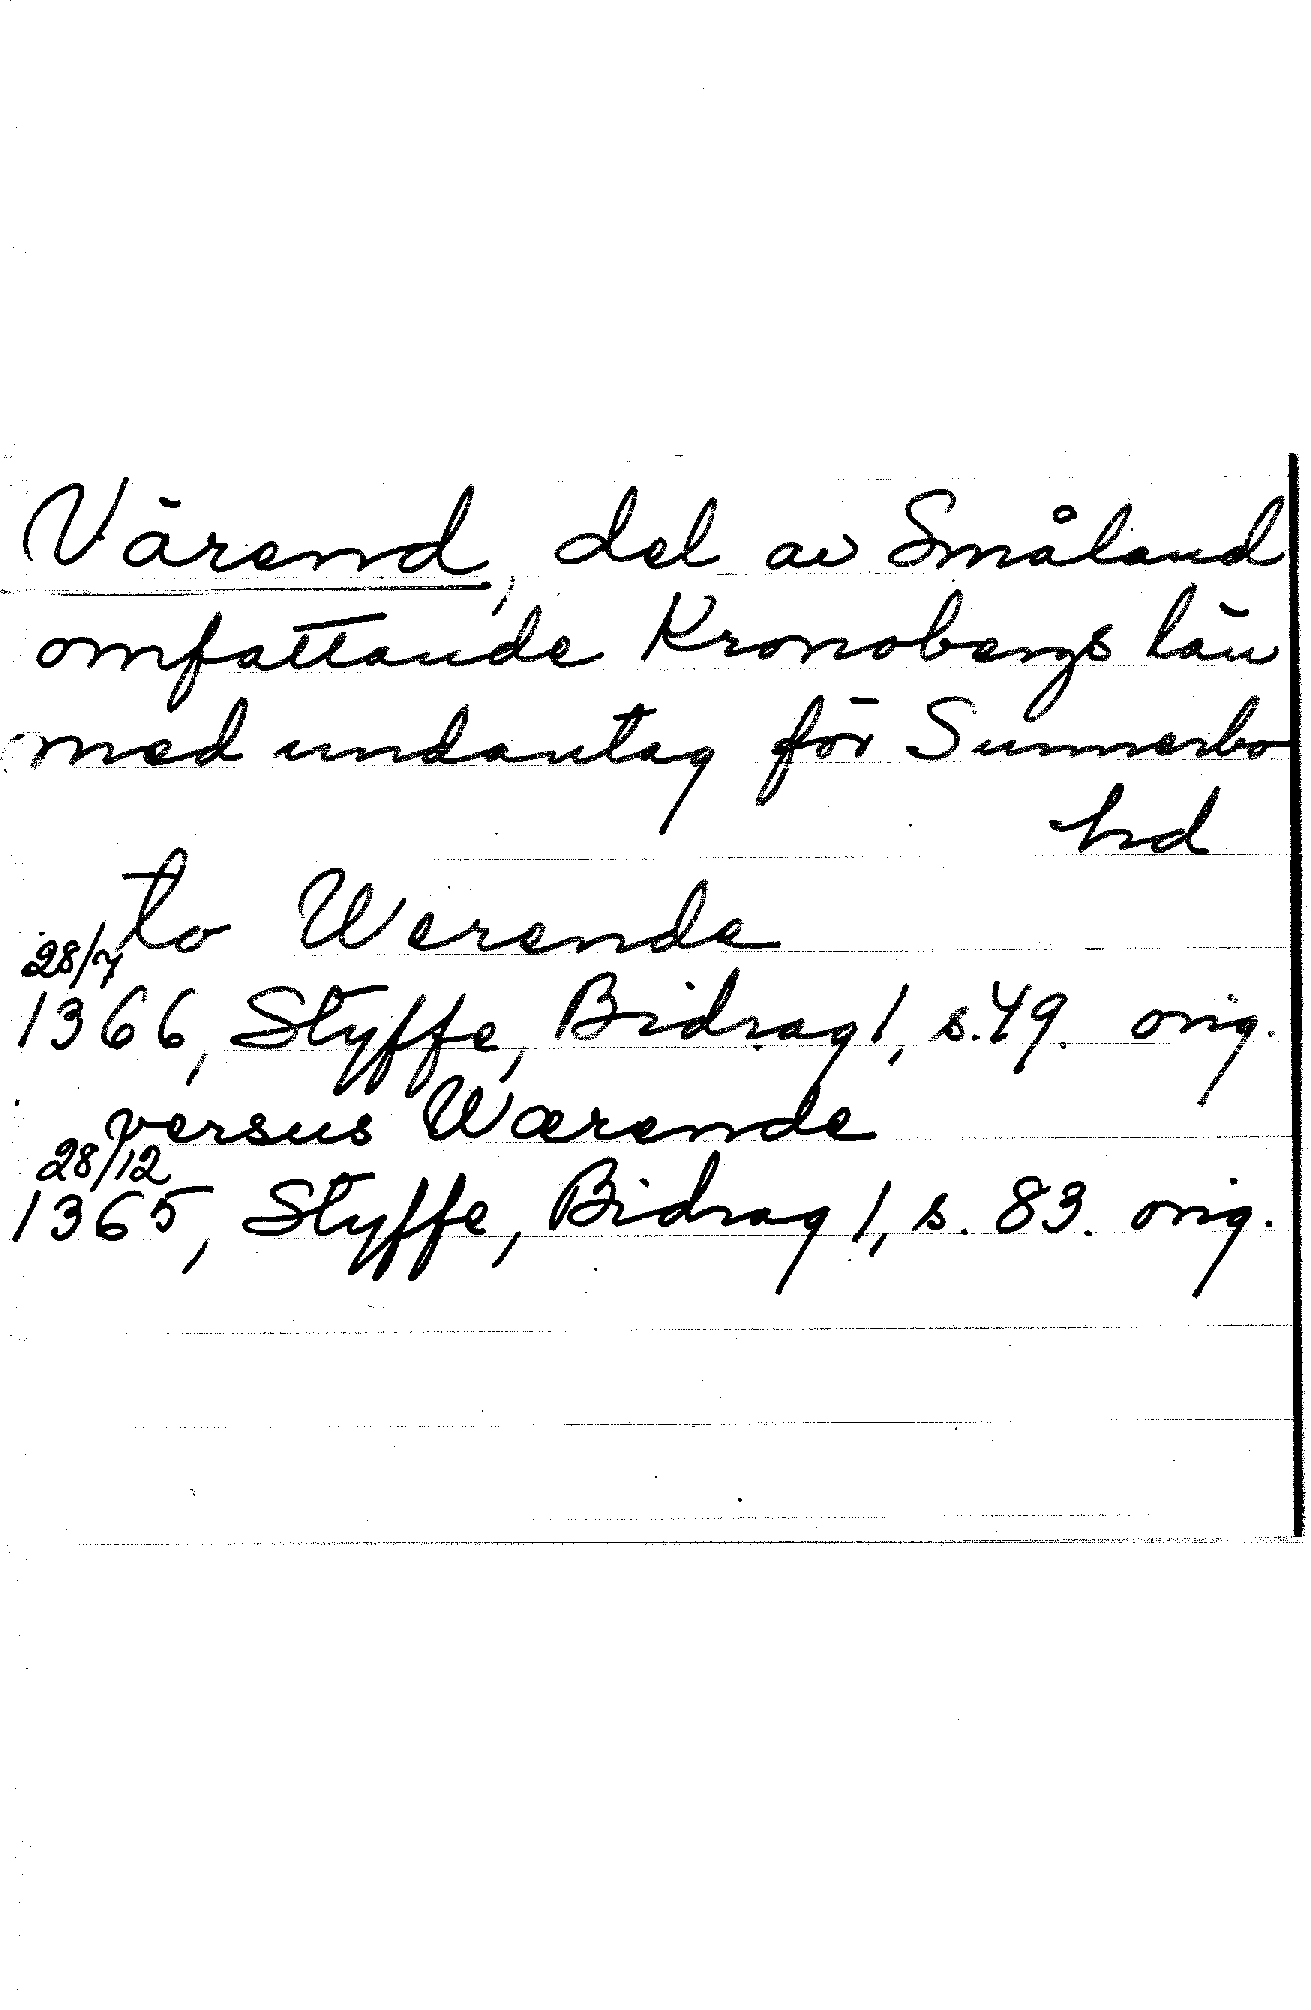 Värend, del av Småland
omfattande Kronobergs län
med undantag för Sunnerbo
hd
to Werende
28/7
1366, Styffe, Bidrag 1, s. 49. orig.
versus Wærende
28/12
1365, Styffe, Bidrag 1, s. 83. orig.